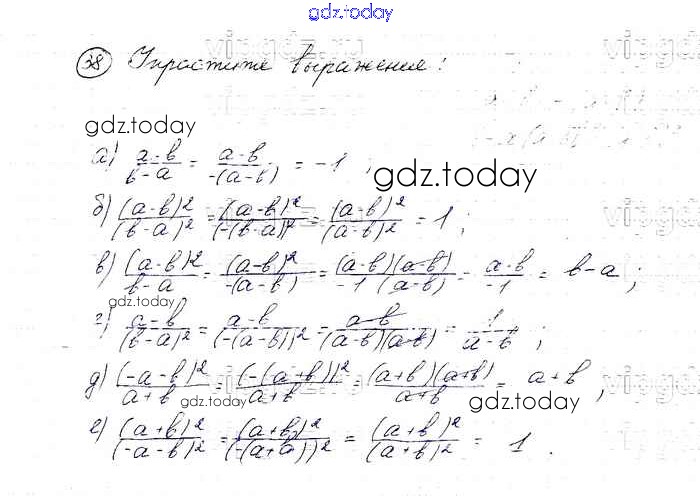 gdz.today
38 Упростите выражение:
gdz.today
а) (a-b)/(b-a) = (a-b)/(-(a-b)) = -1 ;
gdz.today
б) (a-b)²/(b-a)² = (a-b)²/(-(b-a))² = (a-b)²/(a-b)² = 1 ;
в) (a-b)²/(b-a) = (a-b)²/(-(a-b)) = (a-b)(a-b)/(-1 (a-b)) = (a-b)/(-1) = b-a ;
gdz.today
г) (a-b)/(b-a)² = (a-b)/(-(a-b))² = (a-b)/((a-b)(a-b)) = 1/(a-b) ;
д) (-a-b)²/(a+b) = (-(a+b))²/(a+b) = (a+b)(a+b)/(a+b) = a+b ;
gdz.today
е) (a+b)²/(-a-b)² = (a+b)²/(-(a+a))² = (a+b)²/(a+b)² = 1 .